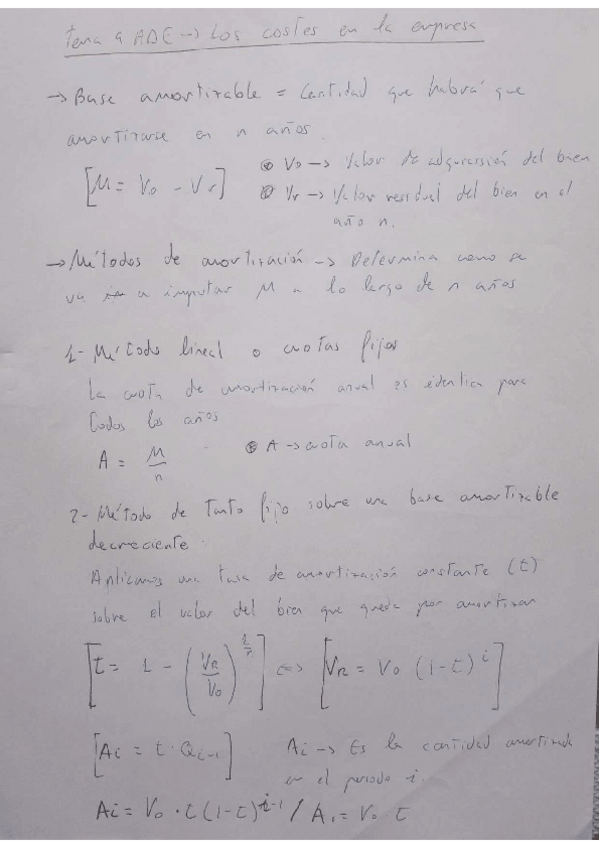 Tema 9 ADE → Los costes en la empresa
→ Base amortizable = Cantidad que habrá que
amortizarse en n años.
[M = Vo - Vr]
• Vo → Valor de adquisición del bien
• Vr → Valor residual del bien en el
año n.
→ Métodos de amortización → Determina como se
va a imputar M a lo largo de n años
1- Método lineal o cuotas fijas
La cuota de amortización anual es identica para
todos los años
A = M/n
• A → cuota anual
2- Método de tanto fijo sobre una base amortizable
decreciente.
Aplicamos una tasa de amortización constante (t)
sobre el valor del bien que queda por amortizar
[t = 1 - (VR/Vo)^(1/n)] <=> [VR = Vo (1-t)^i]
[Ai = t · Qi-1]
Ai → Es la cantidad amortizada
en el periodo i.
Ai = Vo · t (1-t)^(i-1) / A1 = Vo · t